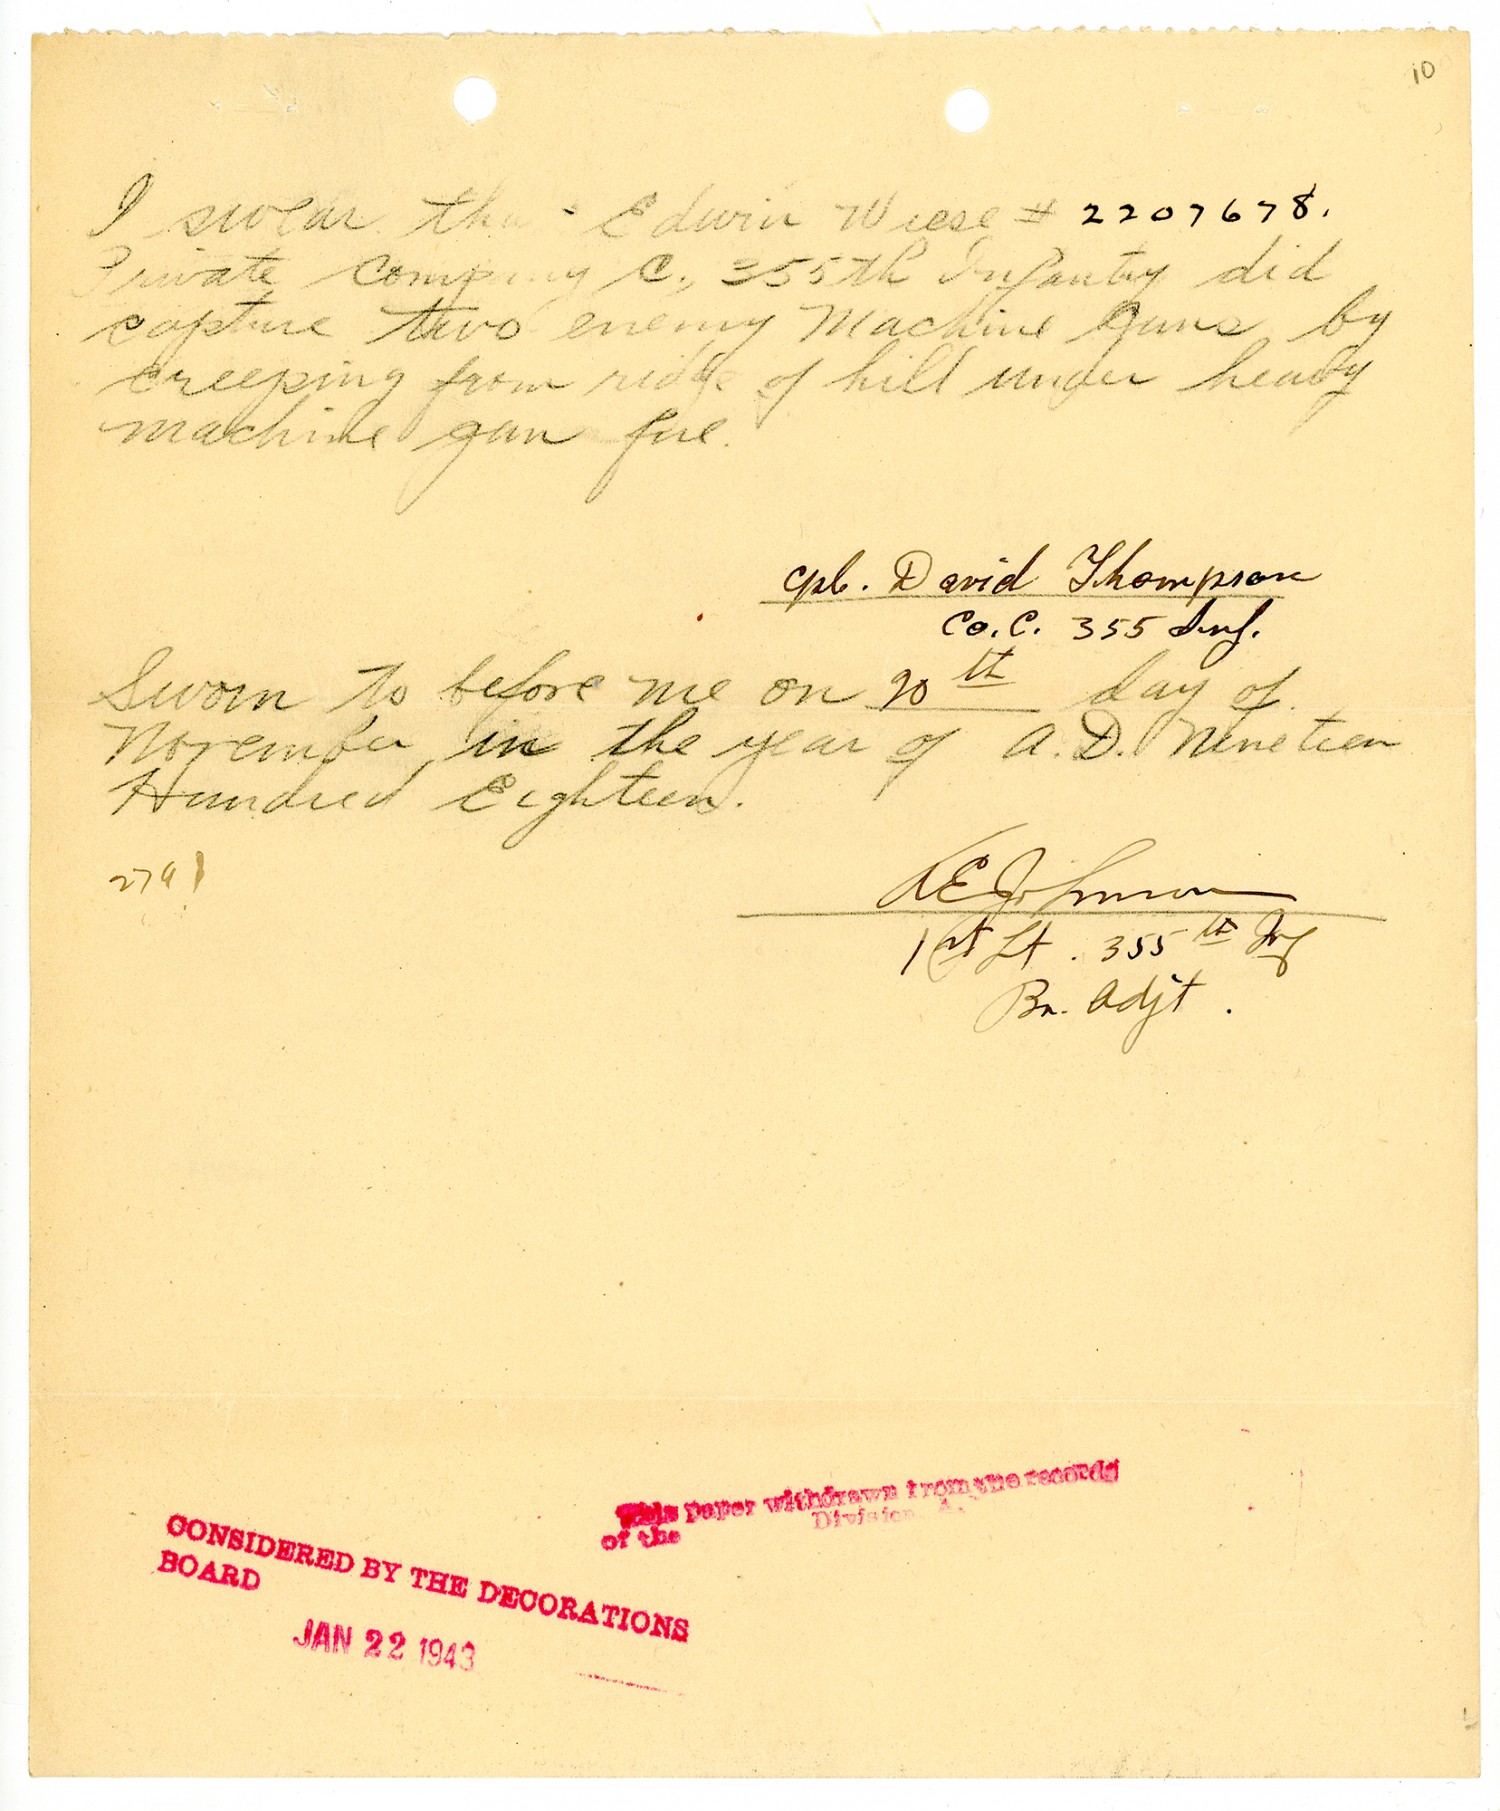 10
I swear tha Edwin Wiese # 2207678.
Private Company C, 355th Infantry did
capture two enemy Machine Guns by
creeping from ridge of hill under heavy
machine gun fire.
Cpl. David Thompson
Co. C. 355 Inf.
Sworn to before me on 20th day of
November in the year of A.D. Nineteen
Hundred Eighteen.
E Johnson
1st Lt. 355th Inf
Bn. Adjt.
This paper withdrawn from the records
of the Division, A.
CONSIDERED BY THE DECORATIONS
BOARD
JAN 22 1943